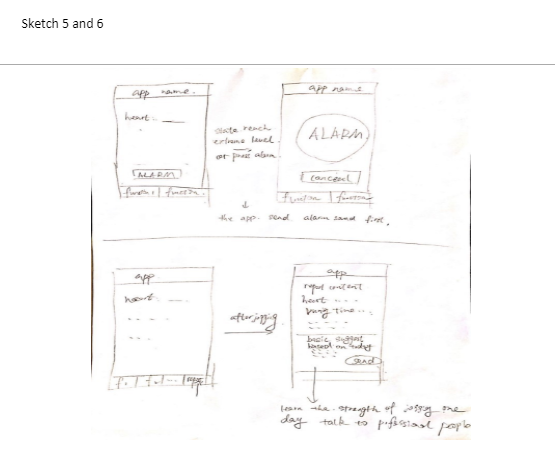 Sketch 5 and 6
app name.
heart.
ALARM
function | function
reach
extreme level
or press alarm
app name
ALARM
cancel
function | function
the app. send alarm sand first.
app
heart
after jogging
app
report content
heart
time
basic suggest
based on today
send
learn the strength of jogging one
day talk to people